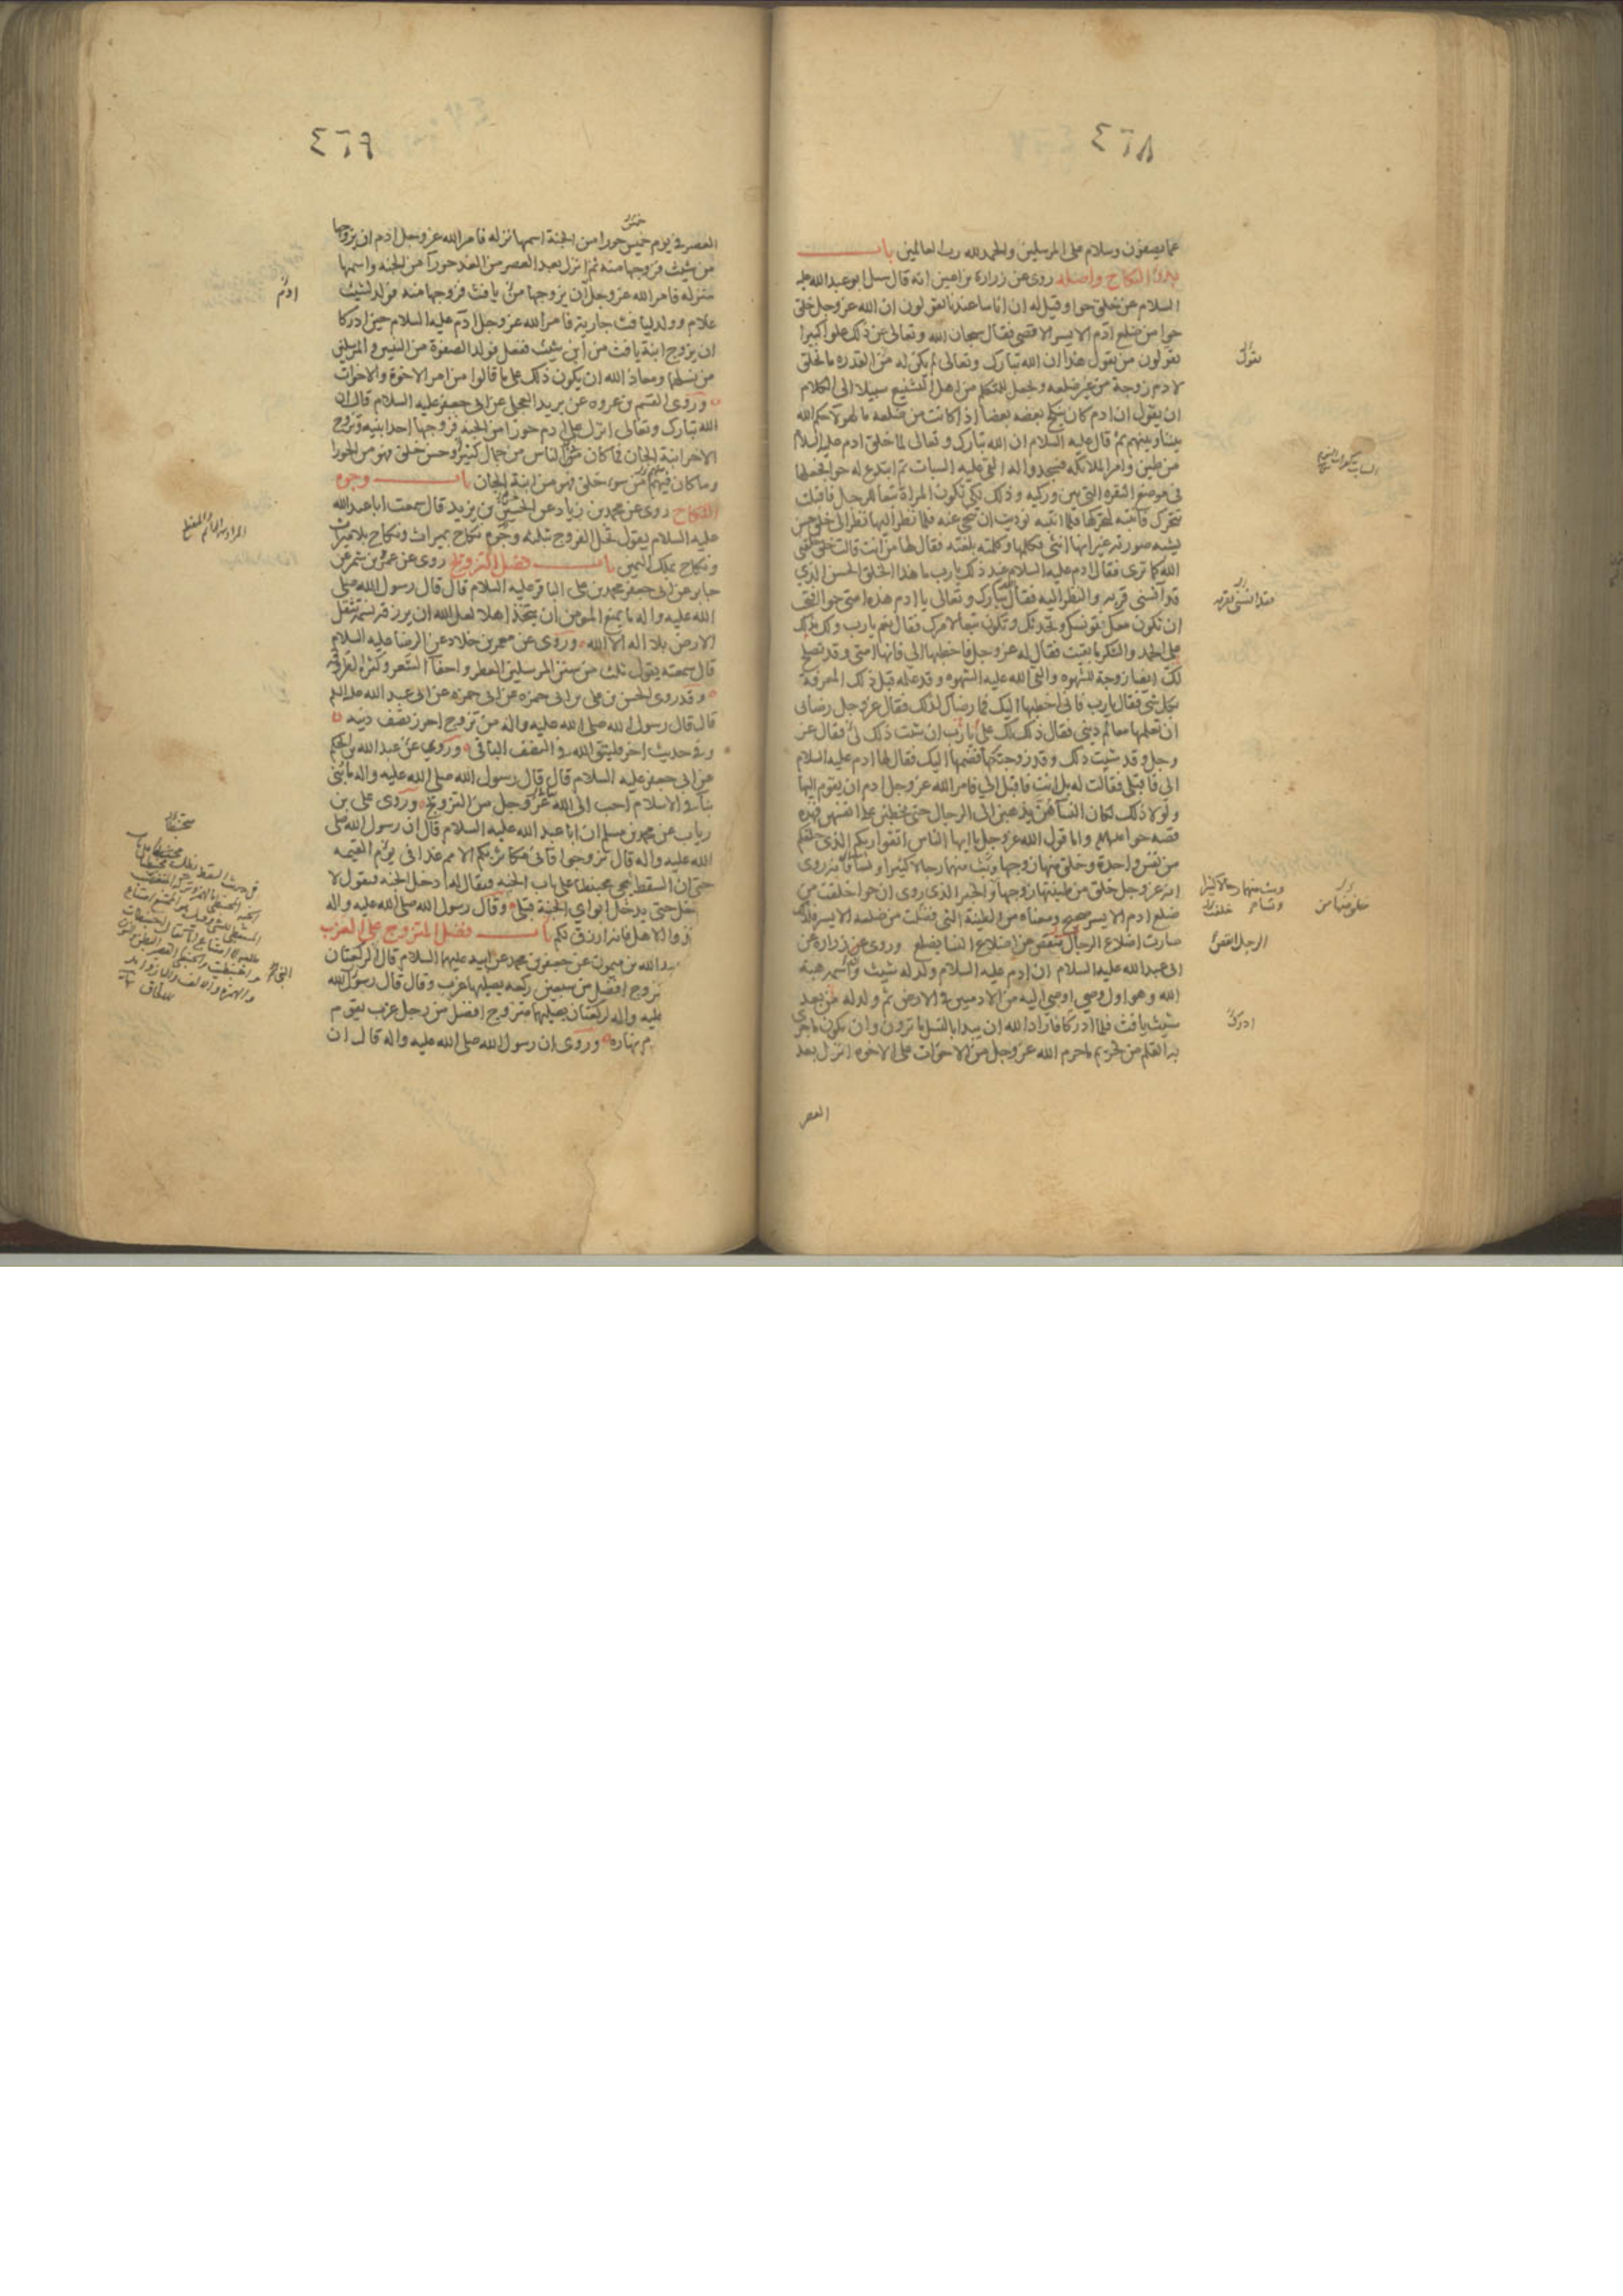 ٤٦٨
عما يصفون وسلام على المرسلين والحمد لله رب العالمين باب
بدو النكاح واصله روى عن زرارة بن اعين انه قال سئل ابو عبد الله عليه
السلام عن خلق حوا وقيل له ان اناسا عندنا يقولون ان الله عز وجل خلق
حوا من ضلع ادم الايسر الاقصى فقال سبحان الله وتعالى عن ذلك علوا كبيرا
يقولون من يقول هذا ان الله تبارك وتعالى لم يكن له من القدرة ما يخلق
لادم زوجة من غير ضلعه ويجعل للمتكلم من اهل التشنيع سبيلا الى الكلام
ان يقول ان ادم كان ينكح بعضه بعضا اذا كانت من ضلعه ما لهولا حكم الله
بيننا وبينهم ثم قال عليه السلام ان الله تبارك وتعالى لما خلق ادم عليه السلام
من طين وامر الملائكة فسجدوا له القى عليه السبات ثم ابتدع له حوا فجعلها
في موضع النقرة التي بين وركيه وذلك لكي تكون المراة تبعا للرجل فاقبلت
تتحرك فانتبه لتحركها فلما انتبه نوديت ان تنحي عنه فلما نظر اليها نظر الى خلق حسن
يشبه صورته غير انها انثى فكلمها وكلمته بلغته فقال لها من انت قالت خلق خلقني
الله كما ترى فقال ادم عليه السلام عند ذلك يارب ما هذا الخلق الحسن الذي
قد آنسني قربه والنظر اليه فقال تبارك وتعالى يا ادم هذه امتي حوا افتحب
ان تكون معك تونسك وتحدثك وتكون تبعا لامرك فقال نعم يارب ولك بذلك
على الحمد والشكر ما بقيت فقال له عز وجل فاخطبها الي فانها امتي وقد تصلح
لك ايضا زوجة للشهوه والقى الله عليه الشهوه وقد علمه قبل ذلك المعرفة
بكل شي فقال يارب فاني اخطبها اليك فما رضاك لذلك فقال عز وجل رضائي
ان تعلمها معالم ديني فقال ذلك لك علي يارب ان شئت ذلك لي فقال عز
وجل وقد شيت ذلك وقد زوجتكها فضمها اليك فقال لها ادم عليه السلام
الي فاقبلي فقالت له بل انت فاقبل الي فامر الله عز وجل ادم ان يقوم اليها
ولولا ذلك لكان النساء هن يذهبن الى الرجال حتى يخطبن على انفسهن فهذه
قصة حوا واما قول الله عز وجل يا ايها الناس اتقوا ربكم الذي خلقكم
من نفس واحدة وخلق منها زوجها وبث منهما رجالا كثيرا ونسا فانه روى
انه عز وجل خلق من طينتها زوجها والخبر الذي روى ان حوا خلقت من
ضلع ادم الايسر صحيح ومعناه من الطينة التي فضلت من ضلعه الايسر فلذلك
صارت اضلاع الرجال انقص من اضلاع النسا بضلع وروى عن زراره عن
ابي عبد الله عليه السلام ان ادم عليه السلام ولد له شيث وان اسمه هبة
الله وهو اول وصي اوصي اليه من الادميين في الارض ثم ولد له من بعد
شيث يافث فلما ادركا فاراد الله ان يبدا بالنسل ما ترون وان يكون ما جرى
به القلم من تحريم ما حرم الله عز وجل من الاخوات على الاخوه انزل بعد
العصر
يقول
وبث منهما رجالا كثيرا
خلق منها من
ادرك
٤٦٩
العصر في يوم خميس حورا من الجنة اسمها نزله فامر الله عز وجل ادم ان يزوجها
من شيث فزوجها منه ثم انزل بعد العصر من الغد حورا من الجنه واسمها
منزله فامر الله عز وجل ان يزوجها من يافث فزوجها منه فولد لشيث
غلام وولد ليافث جارية فامر الله عز وجل ادم عليه السلام حين ادركا
ان يزوج ابنة يافث من ابن شيث ففعل فولد الصفوة من النبيين والمرسلين
من نسلهما ومعاذ الله ان يكون ذلك على ما قالوا من امر الاخوة والاخوات
وروى القسم بن عروه عن بريد العجلي عن ابي جعفر عليه السلام قال ان
الله تبارك وتعالى انزل على ادم حورا من الجنه فزوجها احد ابنيه وتزوج
الاخر ابنة الجان فما كان في الناس من جمال كثير او حسن خلق فهو من الحورا
وما كان فيهم من سوء خلق فهو من ابنة الجان باب وجوه
النكاح روى عن محمد بن زياد عن الحسين بن يزيد قال سمعت ابا عبد الله
عليه السلام يقول يحل الفروج بثلثه وجوه نكاح بميراث ونكاح بلا ميراث
ونكاح بملك اليمين باب فضل التزويج روى عن عمرو بن شمر عن
جابر عن ابي جعفر محمد بن علي الباقر عليه السلام قال قال رسول الله صلى
الله عليه واله ما يمنع المومن ان يتخذ اهلا لعل الله ان يرزقه نسمة تثقل
الارض بلا اله الا الله وروى عن معمر بن خلاد عن الرضا عليه السلام
قال سمعته يقول ثلث من سنن المرسلين العطر واحفا الشعر وكثرة الطروقه
وقد روى الحسن بن علي بن ابي حمزه عن ابي عبد الله عليه السلام
قال قال رسول الله صلى الله عليه واله من تزوج احرز نصف دينه
وفي حديث اخر فليتق الله في النصف الباقي وروي عن عبد الله بن الحكم
عن ابي جعفر عليه السلام قال قال رسول الله صلى الله عليه واله ما بني
بنا في الاسلام احب الى الله عز وجل من التزويج وروى علي بن
رياب عن محمد بن مسلم ان ابا عبد الله عليه السلام قال ان رسول الله صلى
الله عليه واله قال تزوجوا فاني مكاثر بكم الامم غدا في يوم القيمه
حتى ان السقط يجي محبنطا على باب الجنه فيقال له ادخل الجنه فيقول لا
حتى يدخل ابواي الجنة قبلي وقال رسول الله صلى الله عليه واله
الاهل فانه ارزق لكم باب فضل المتزوج على العزب
عبد الله بن ميمون عن جعفر بن محمد عن ابيه عليهما السلام قال الركعتان
افضل من سبعين ركعه يصليها عزب وقال قال رسول الله
عليه واله لركعتان يصليهما متزوج افضل من رجل عزب يقوم
نهاره وروى ان رسول الله صلى الله عليه واله قال ان